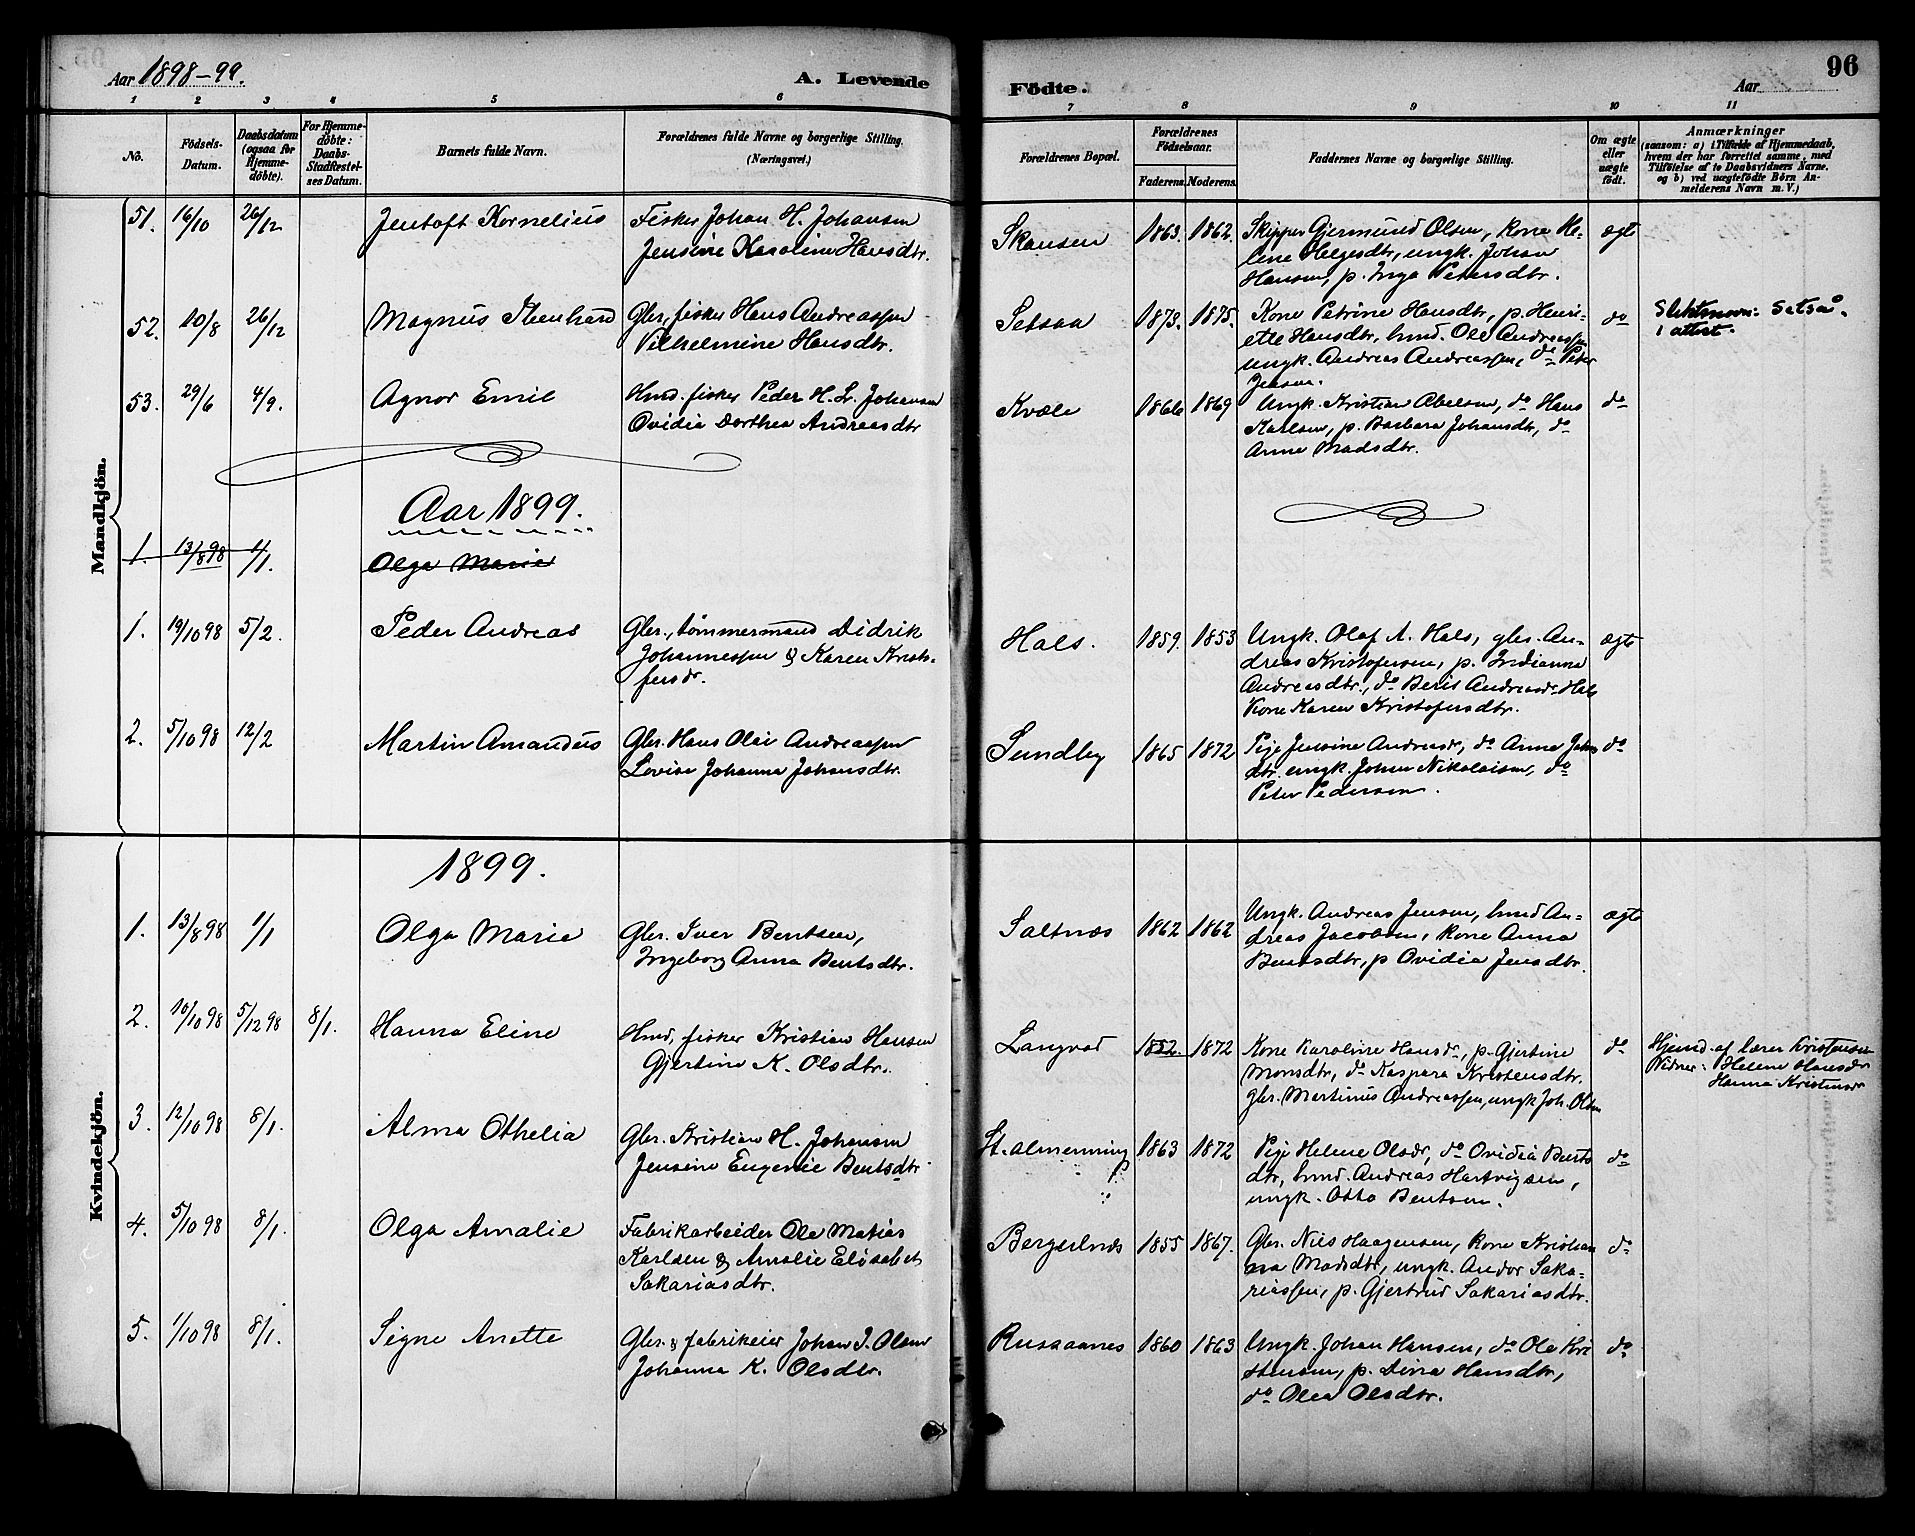 Aar 1898-99.
A. Levende
Födte.
Aar
96
1 2 3 4 5 6 7 8 9 10 11
No.
Födsels-Datum.
Daabsdatum (ogsaa for Hjemme-döbte).
For Hjemme-döbte: Daabs-Stadfæstel-ses Datum.
Barnets fulde Navn.
Forældrenes fulde Navne og borgerlige Stilling. (Næringsvei.)
Forældrenes Bopæl.
Forældrenes Födselsaar.
Faderens. Moderens.
Faddernes Navne og borgerlige Stilling.
Om ægte eller uægte födt.
Anmærkninger
(saasom: a) i Tilfælde af Hjemmedaab, hvem der har forrettet samme, med Tilföielse af to Daabsvidners Navne, og b) ved uægtefödte Börn An-melderens Navn m. V.)
Mandkjön.
51. 16/10 26/12 Jentoft Kornelius Fisker Johan H. Johansen
Jensine Karoline Hansdtr.
Skansen 1863. 1862. Skipper Gjermund Olsen, kone He-
line Helgesdtr, ungk. Johan
Hansen, p. Inga Petersdtr.
ægte
52. 10/8 26/12 Magnus Menhard Gbr., fisker Hans Andreassen
Vilhelmine Hansdtr.
Setsaa 1873. 1875. Kone Petrine Hansdtr, p. Henri-
ette Hansdtr, hmd. Ole Andreassen
ungk. Andreas Andreassen, do Peter
Jensen.
do
Slektsnavn: Setså.
1 attest.
53. 29/6 4/9. Agnor Emil Hmd. fisker Peder H. L. Johansen
Ovidia Dorthea Andreasdtr
Kvæle 1866 1869 Ungk. Kristian Abelsen, do Hans
Karlsen, p. Barbara Johansdtr, do
Anne Madsdtr.
do
Aar 1899.
1. 13/8 98 1/1. Olga Marie
1. 19/10 98 5/2. Peder Andreas Gbr., tømmermand Didrik
Johannessen & Karen Kristo-
fersdr.
Hals. 1859. 1853 Ungk. Olaf A. Hals, gbr. An-
dreas Kristofersen, p. Indianna
Andreasdtr., do Berit Andreasdr Hals
Kone Karen Kristofersdtr.
ægte
2. 5/10 98 12/2 Martin Amandus Gbr. Hans Olai Andreassen
Lovise Johanna Johansdtr.
Sundby 1865 1872 Pige Jensine Andreasdr, do Anna Johns
dtr. ungk. Johan Nikolaisen, do
Peter Pedersen.
do
Kvindekjön.
1899.
1. 13/8 98 1/1 Olga Marie Gbr. Iver Bentsen,
Ingeborg Anna Bentsdtr.
Saltnæs 1862 1862 Ungk. Andreas Jensen, hmd An-
dreas Jacobsen, kone Anna
Bentsdtr, p Ovidia Jensdtr.
ægte
2. 10/10 98 5/12 98 8/1. Hanna Eline Hmd, fisker Kristian Hansen
Gjertine K. Olsdtr.
Langvad 1832 1872 Kone Karoline Hansdr, p. Gjertine
Monsdtr, do Kaspara Kristensdtr.
gbr. Martinus Andreassen, ungk Joh. Olsen
do
Hjemd. af lærer Kristensen
Vidner: Helene Hansdr
Hanna Kristensdr
3. 12/10 98 8/1. Alma Othelia Gbr. Kristian H. Johansen
Jensine Eugenie Bentsdtr.
St. almenning 1863 1872 Pige Helene Olsdr, do Ovidia Bents
dtr, hmd. Andreas Hartvigsen,
ungk. Otto Bentsen.
do
4. 5/10 98 8/1. Olga Amalie Fabrikarbeider Ole Matias
Karlsen & Amalie Elisabet
Sakariasdtr.
Bergeelnæs 1855 1867. Gbr. Nils Haagensen, kone Kristian
na Madsdtr, ungk. Andor Saka-
riassen, p. Gjertrud Sakariasdtr.
do
5. 1/10 98 8/1. Signe Anette Gbr. & fabrikeier Johan J. Olsen
Johanna K. Olsdtr.
Russaanes 1860 1863 Ungk. Johan Hansen, do Ole Kri
stensen, p. Dina Hansdtr,
do Olea Olsdtr.
do